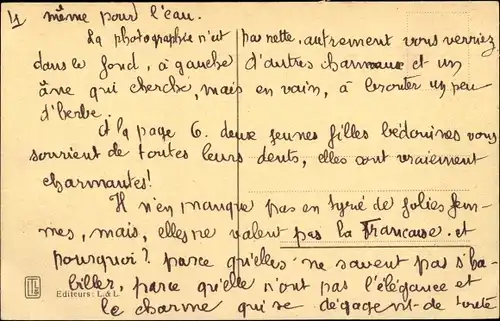 4 même pour l'eau.
La photographie n'est pas nette, autrement vous verriez
dans le fond, à gauche d'autres chameaux et un
âne qui cherche, mais en vain, à brouter un peu
d'herbe.
A la page 6. deux jeunes filles bédouines vous
sourient de toutes leurs dents, elles sont vraiement
charmantes!
Il n'en manque pas en Syrie de jolies fem-
mes, mais, elles ne valent pas la Française. et
pourquoi? parce qu'elles ne savent pas s'ha-
biller, parce qu'elle n'ont pas l'élégance et
le charme qui se dégagent de
Editeurs: L & L